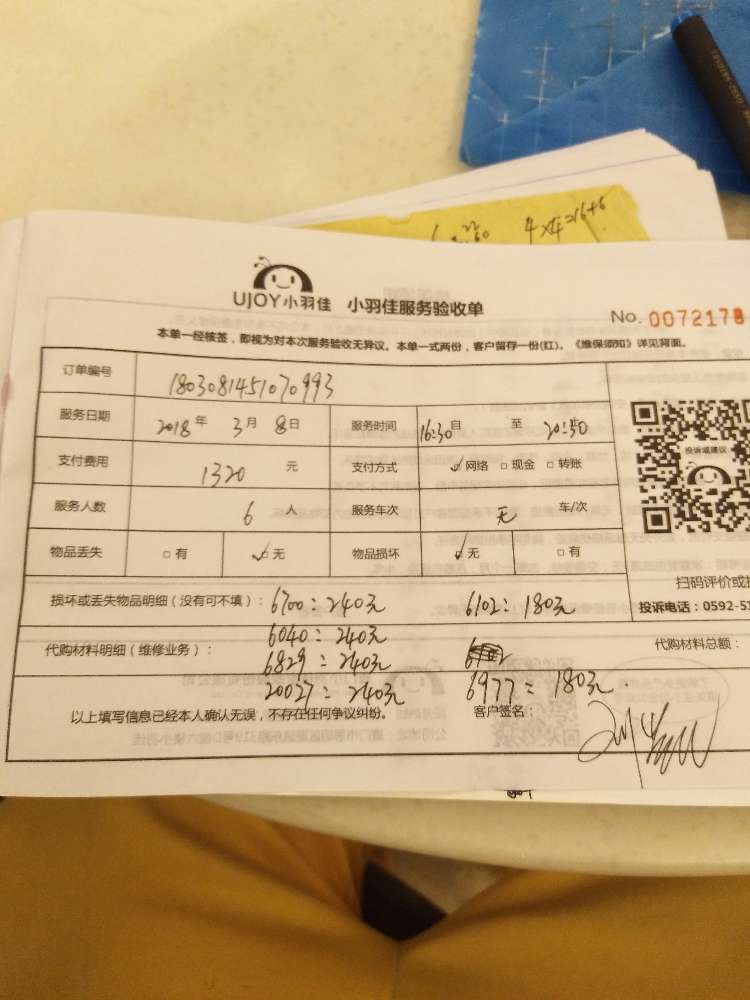 4×4=16+6
UJOY小羽佳 小羽佳服务验收单
No. 0072178
本单一经核签，即视为对本次服务验收无异议。本单一式两份，客户留存一份(红)。《维保须知》详见背面。
订单编号 1803081451070993
服务日期 2018年 3月 8日 服务时间 16:30自 至 20:30
投诉或建议
支付费用 1320 元 支付方式 ✓网络 □现金 □转账
服务人数 6 人 服务车次 无 车/次
物品丢失 □有 ✓无 物品损坏 ✓无 □有
扫码评价或投
损坏或丢失物品明细（没有可不填）： 6700：240元 6102：180元
投诉电话：0592-51
6040：240元
代购材料明细（维修业务）： 6829：240元
代购材料总额：
20027：240元 6977：180元.
以上填写信息已经本人确认无误，不存在任何争议纠纷。 客户签名：